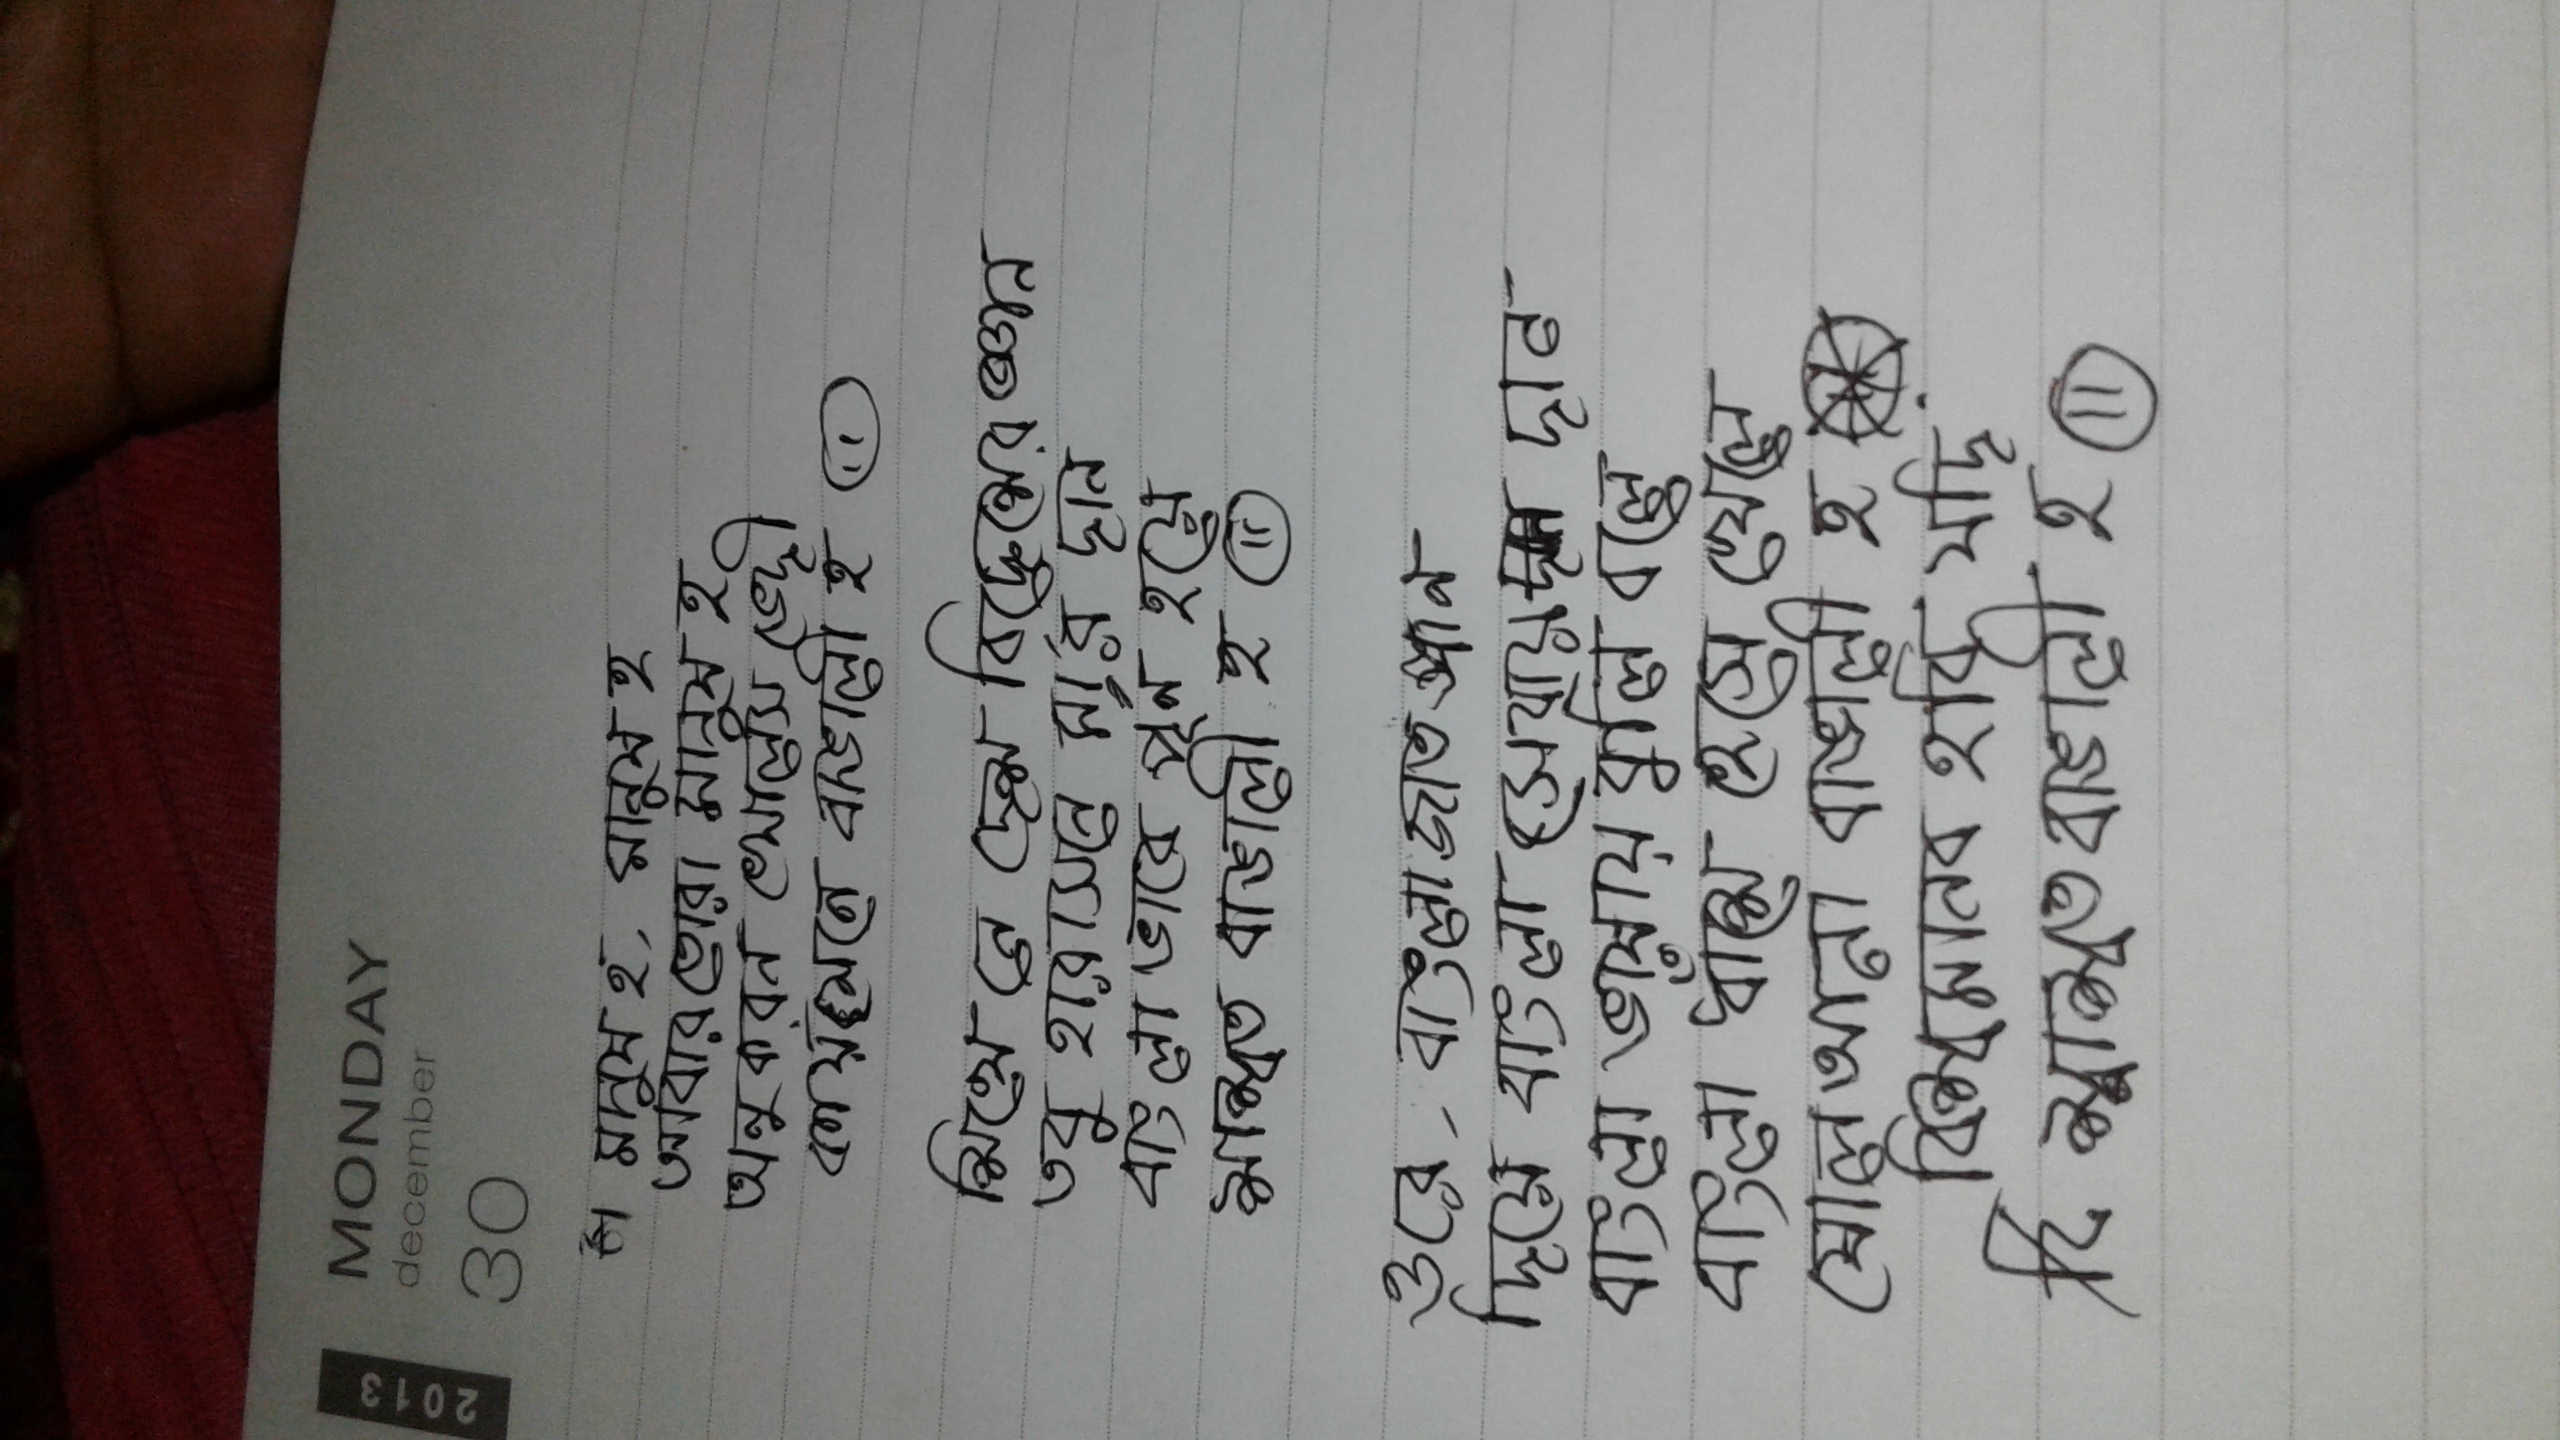 2013
MONDAY
december
30
মানুষ হ, মানুষ হ
আবার তোরা মানুষ হ
অনুকরন খোলস ভেদী
কায়মনে বাঙালী হ ॥
শিখে নে দেশ বিদেশের জ্ঞান
তবু হারাসনে মা'র দান
বাংলা ভাবে পূর্ন হয়ে
শাশ্বত বাঙালী হ ॥
ওরে, বাংলা
দিয়ে বাংলা সেবায়
বাংলা ভাষায় বুলি বলে
বাংলা ধাঁচে হেসে খেলে
ষোল আনা বাঙালী হ
বিশ্বমানব হবি যদি
শাশ্বত বাঙালী হ ॥